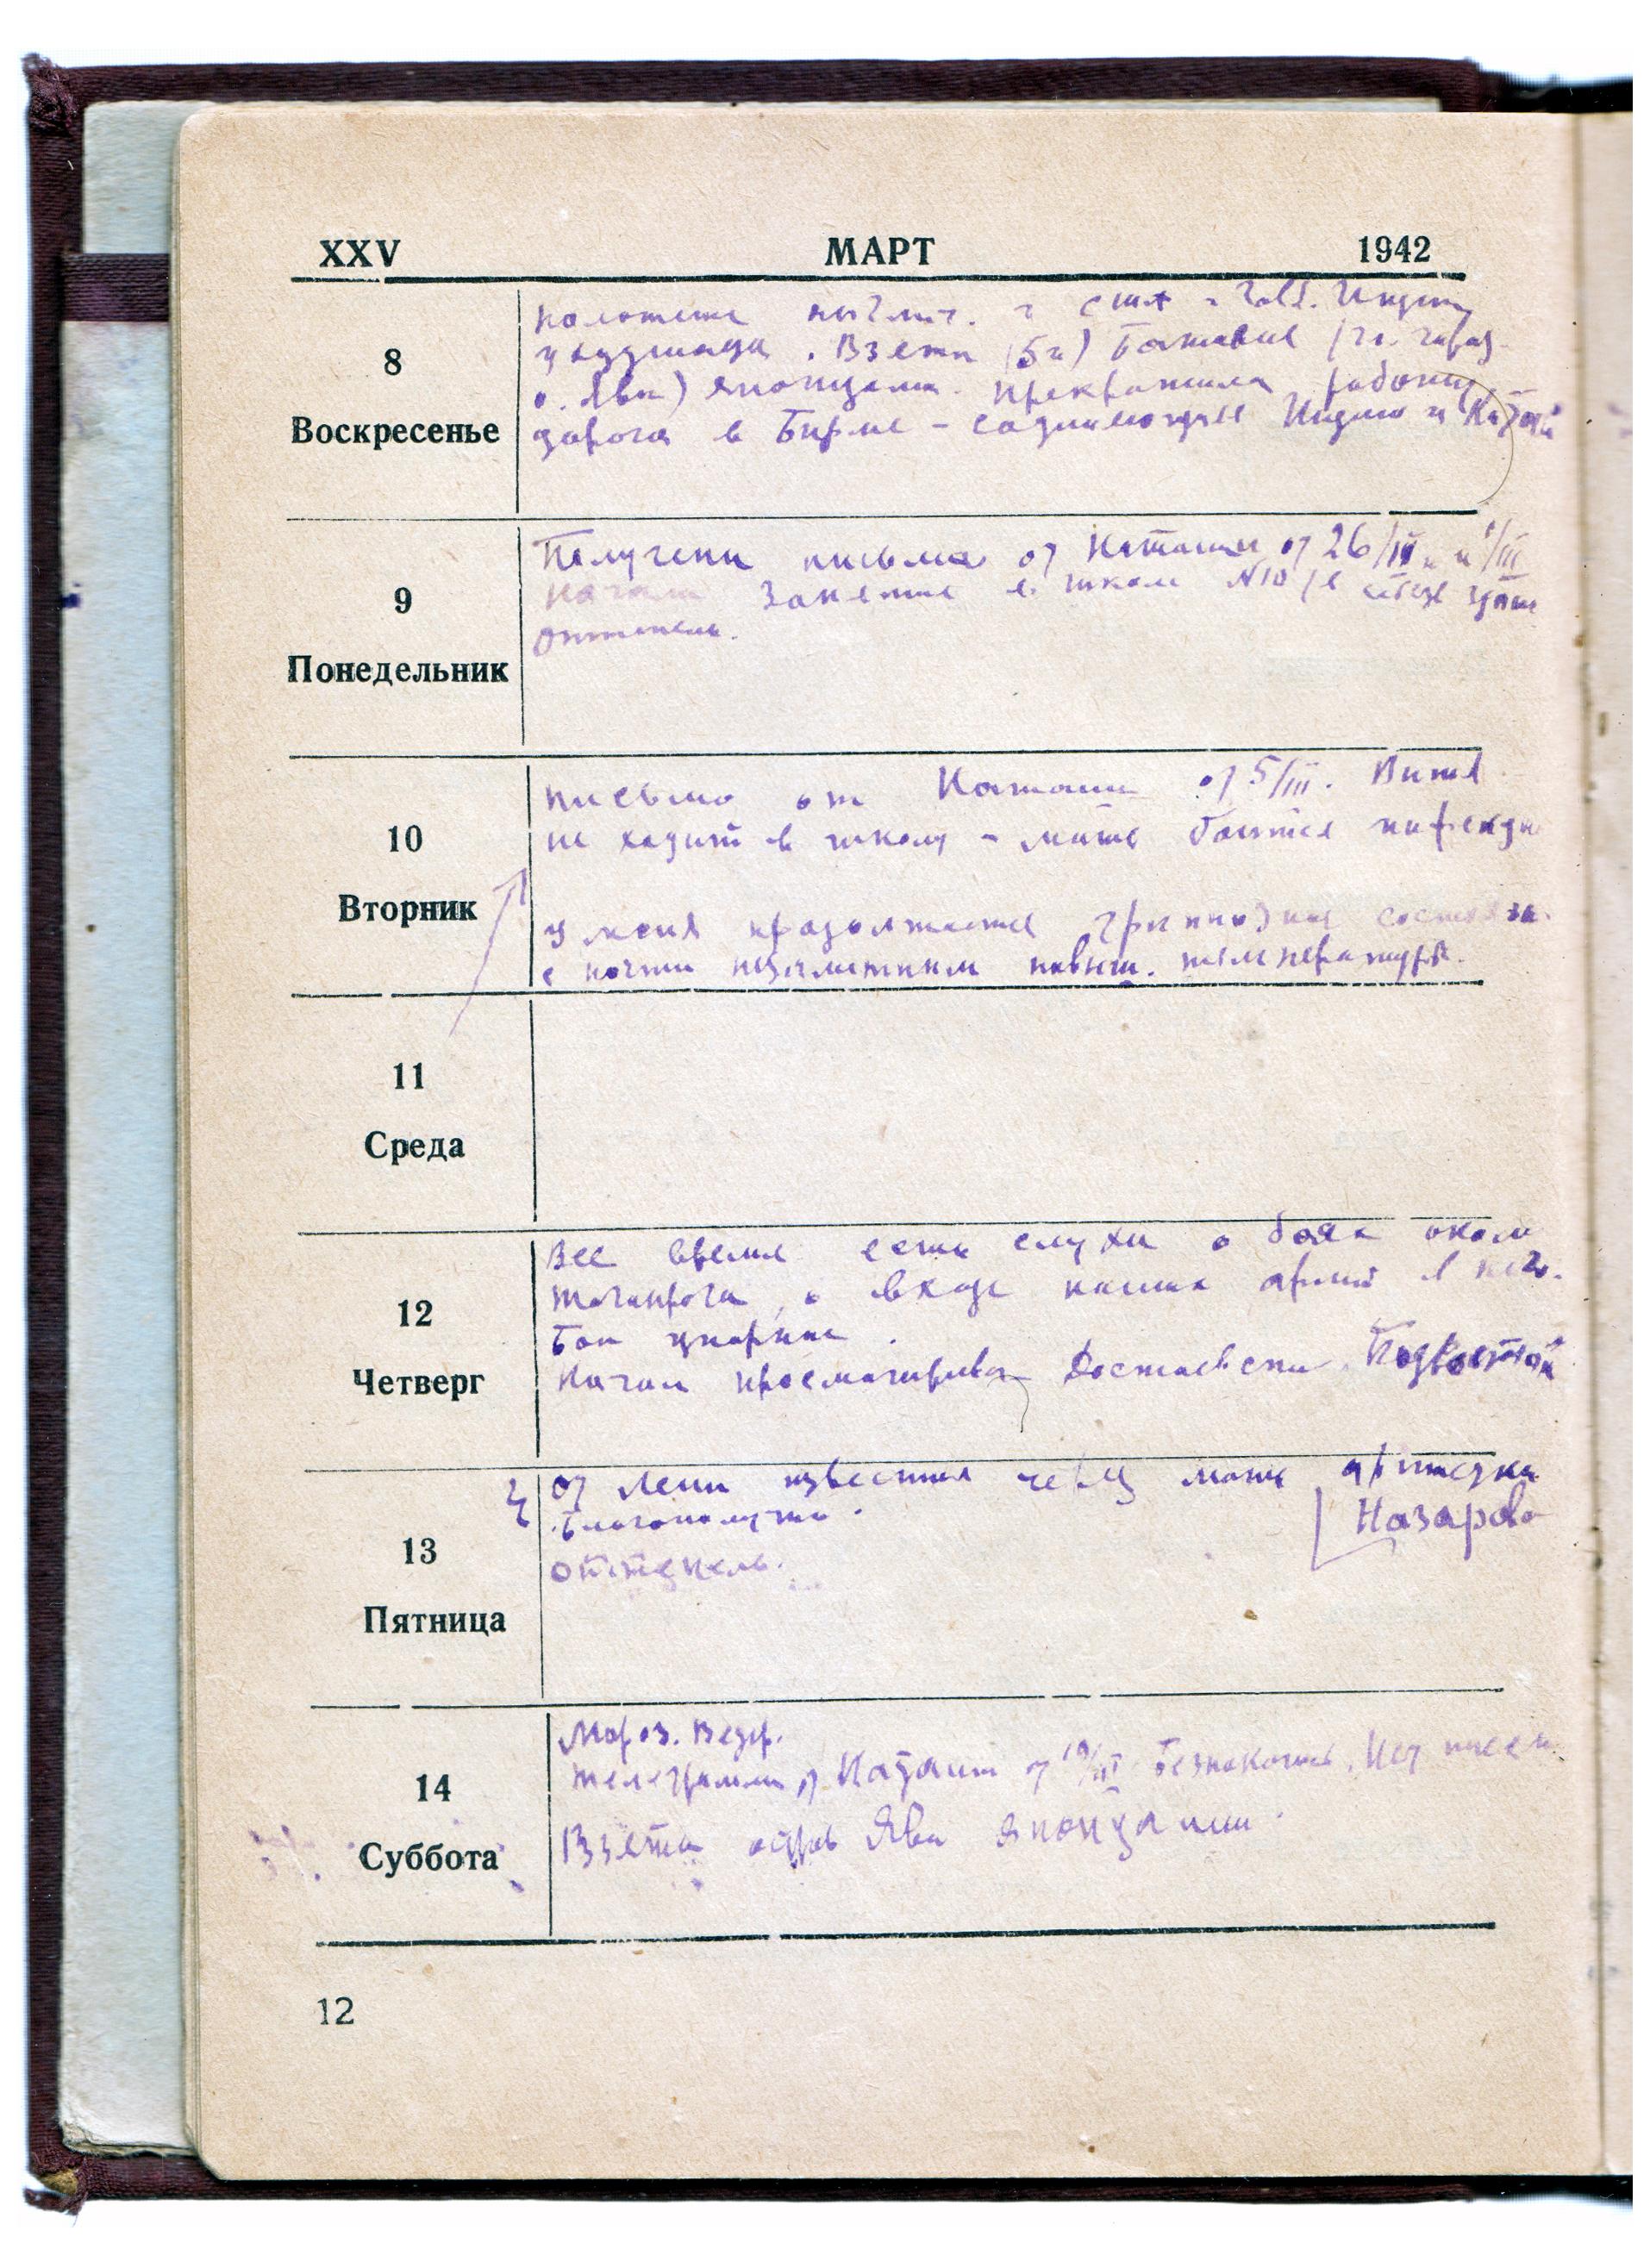 XXV МАРТ 1942
8
Воскресенье
положение англич. и сша в Гол. Индии
ухудшил. Взята (5го) Батавия (гл. город
о. Ява) японцами. Прекратила работу
дорога в Бирме – соединяющая Индию и Китай
9
Понедельник
Получены письма от Наташи от 26/II и 1/III
Начал занятия в школе №10
оттепель.
10
Вторник
письмо от Наташи от 5/III. Витя
не ходит в школу – мать боится инфекции
У меня продолжается гриппозное состояни
с почти незаметным повыш. температуры.
11
Среда
12
Четверг
Все время есть слухи о боях около
Таганрога, о входе наших армий в него.
Бои упорные.
Начал просматрив. Достоевского Подросток
13
Пятница
От Лени известия через мать
Благополучно. Назаров
оттепель.
14
Суббота
Мороз. Ведр.
Телеграмма от Наташи от 10/III беспокоясь. Нет писем
Взята остров Ява японцами.
12